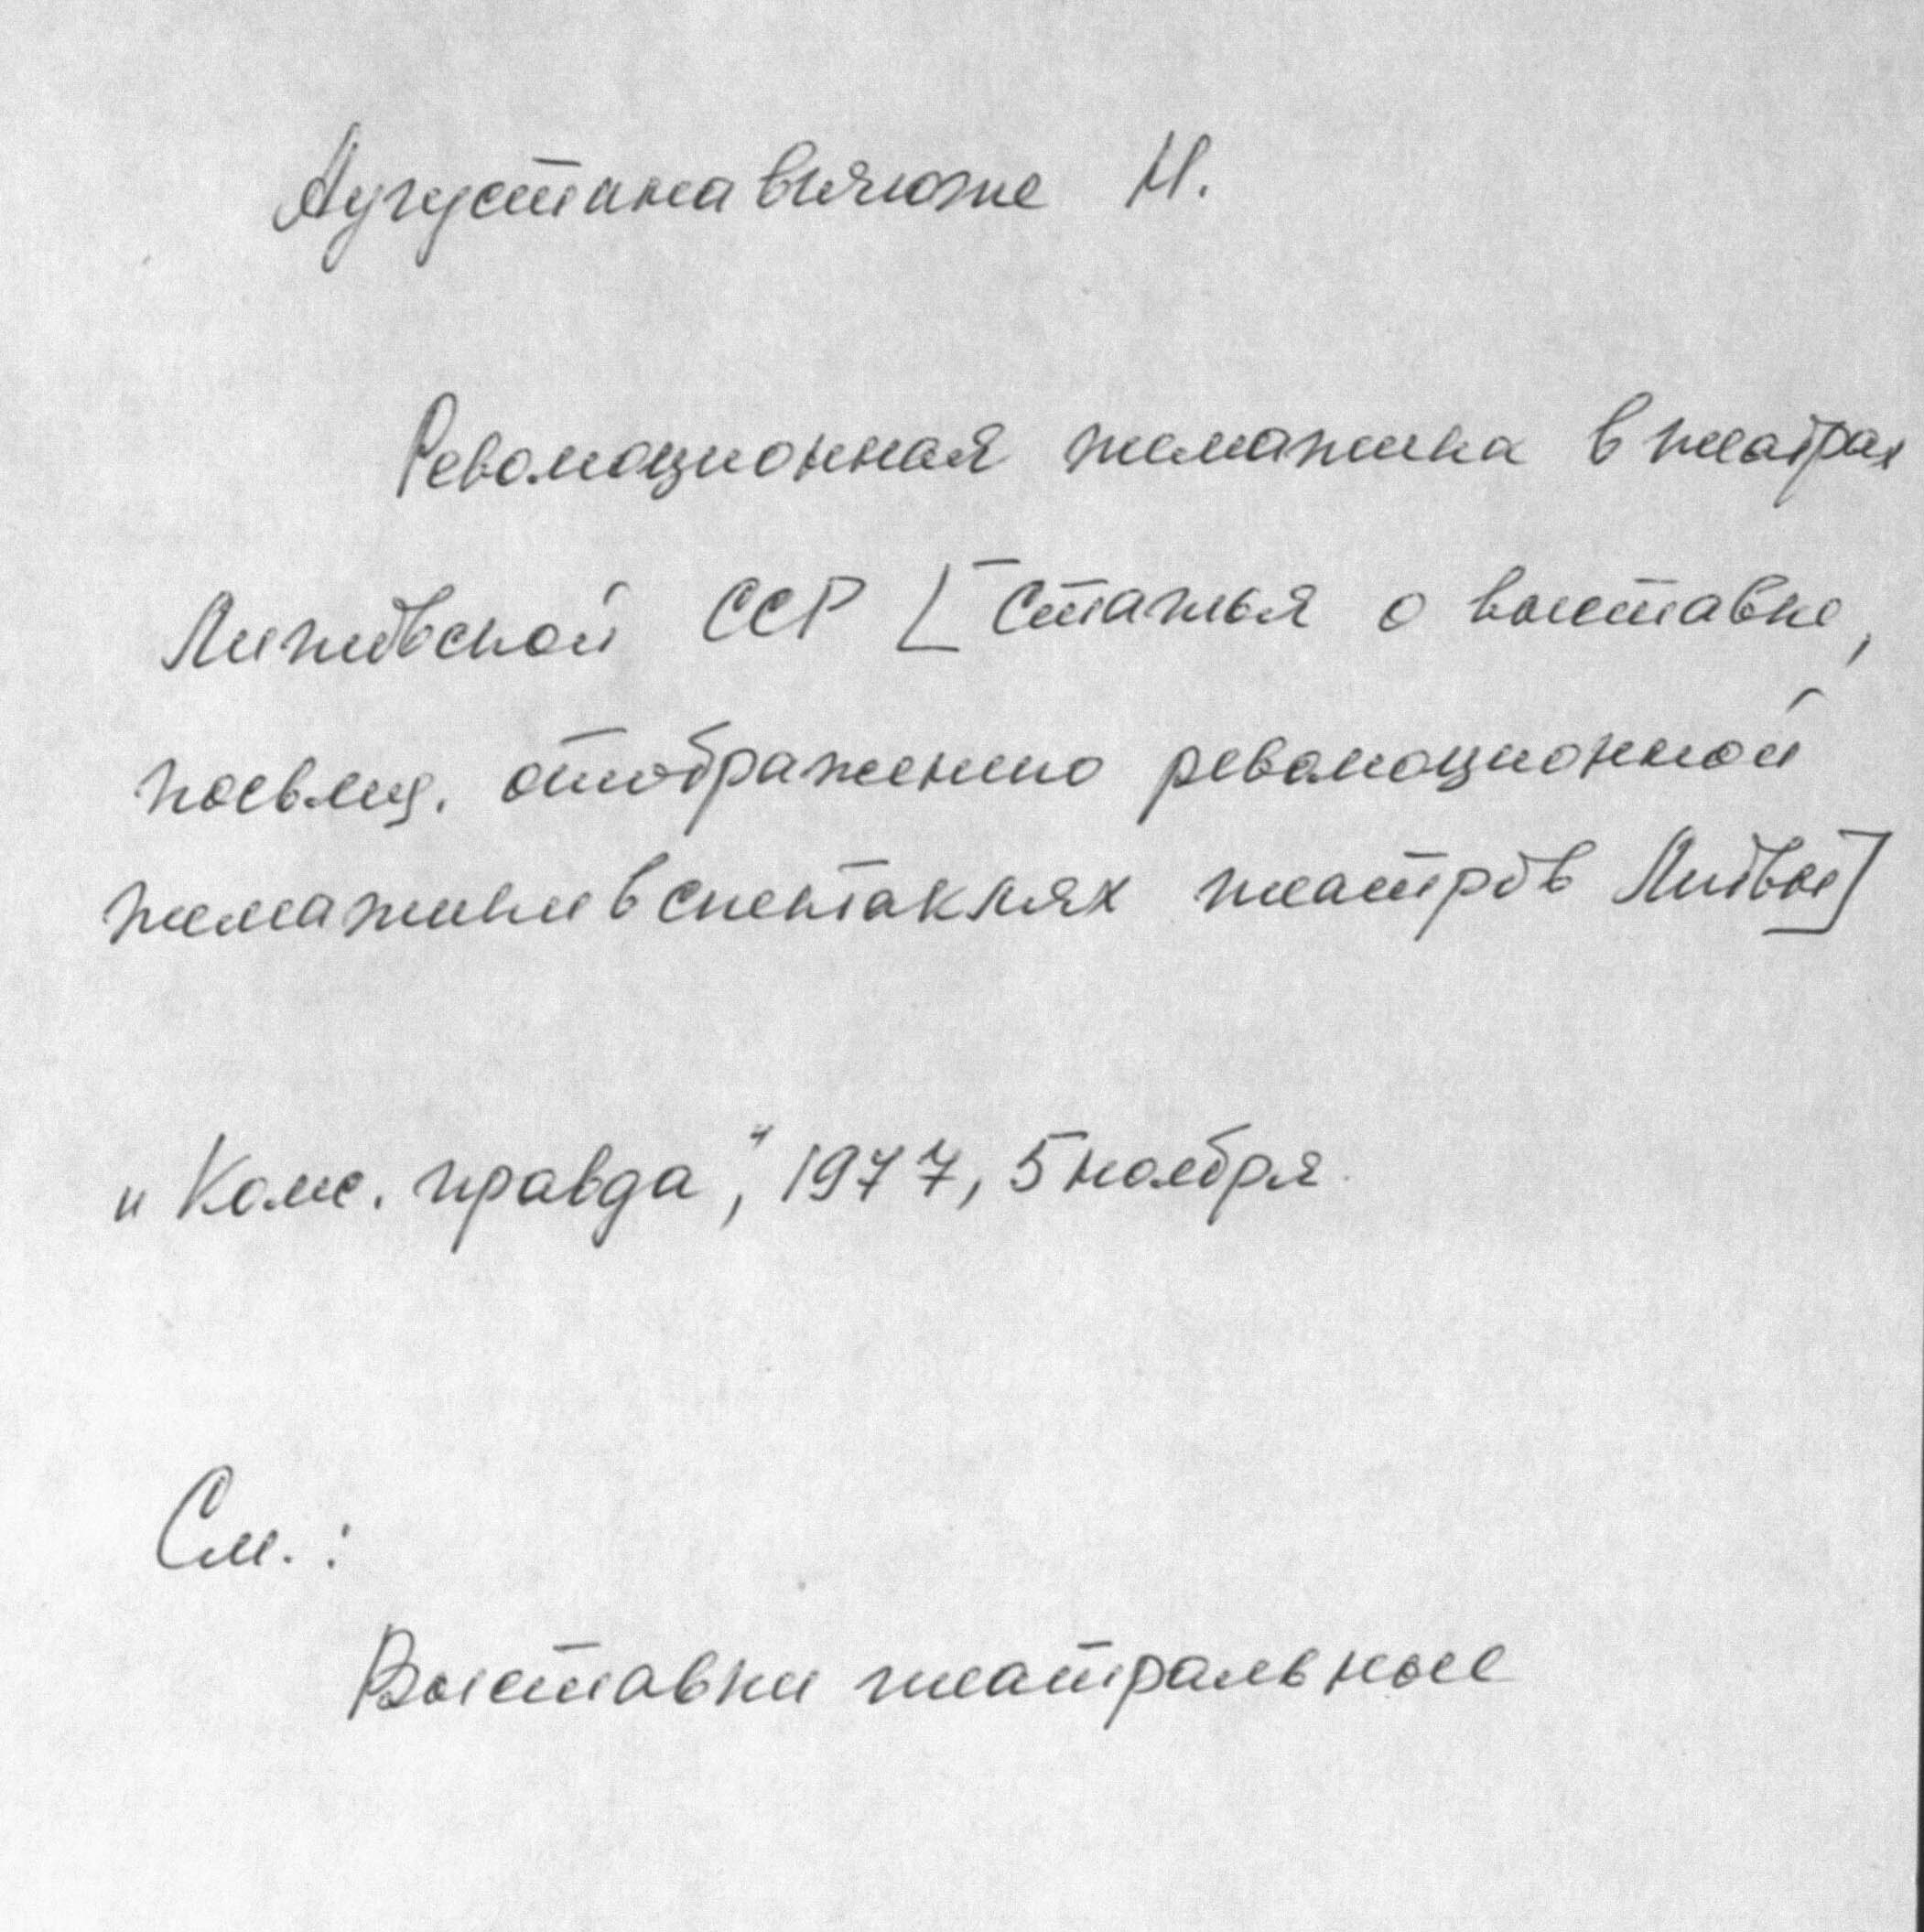 Аугустинавичюте И.
Революционная тематика в театрах
Литовской ССР [Статья о выставке,
посвящ. отображению революционной
тематики в спектаклях театров Литвы]
„Комс. правда", 1977, 5 ноября.
См.:
Выставки театральные